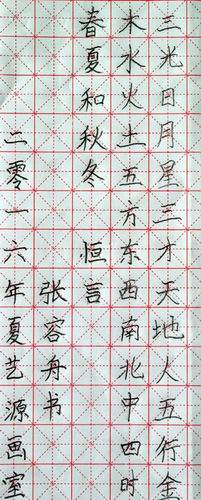 三光日月星三才天地人五行金
木水火土五方东西南北中四时
春夏和秋冬 恒言
张容舟书
二零一六年夏艺源画室